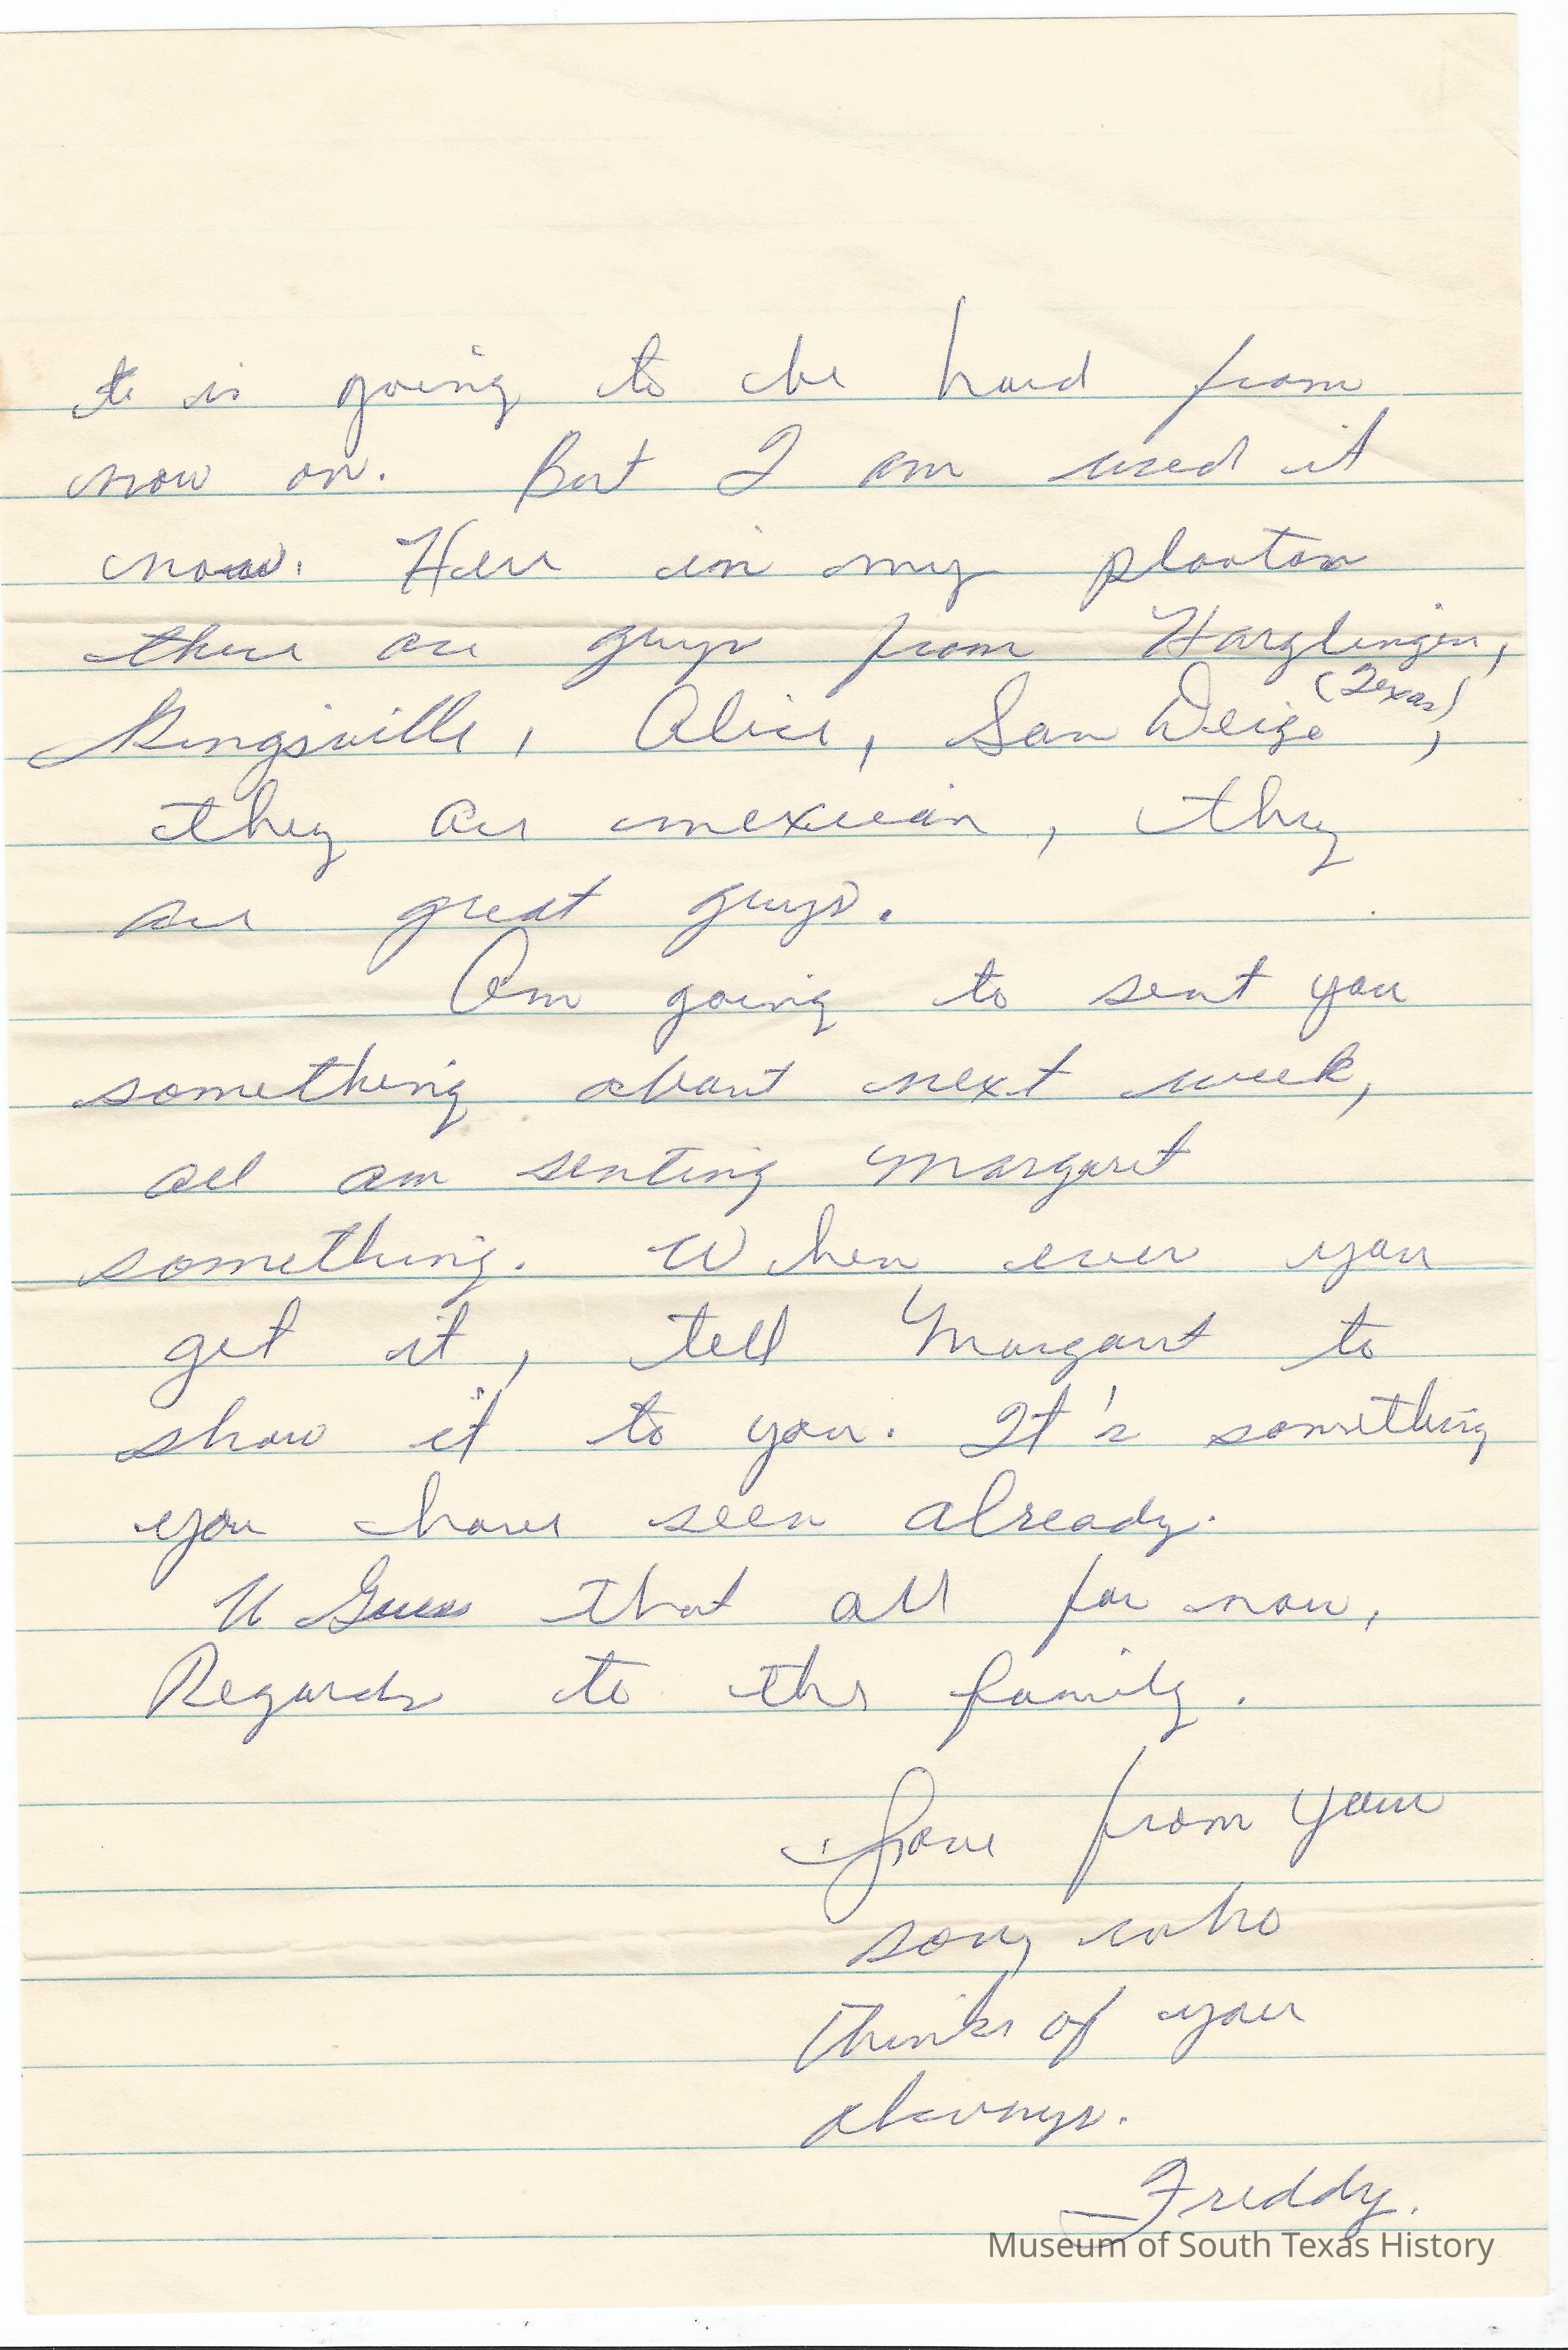 is going to be hard from
now on. But I am used it
now. Here in my plooton
there are guys from Harglingin,
Kingsville, Alice, San Deigo (Texas),
they are mexican, they
are great guys.
Am going to sent you
something about next week,
am senting Margaret
something. When ever you
get it, tell Margaret to
show it to you. It's something
you have seen already.
Guess that all for now,
Regards to the family.
Love from your
son, who
thinks of you
always.
Freddy.
Museum of South Texas History